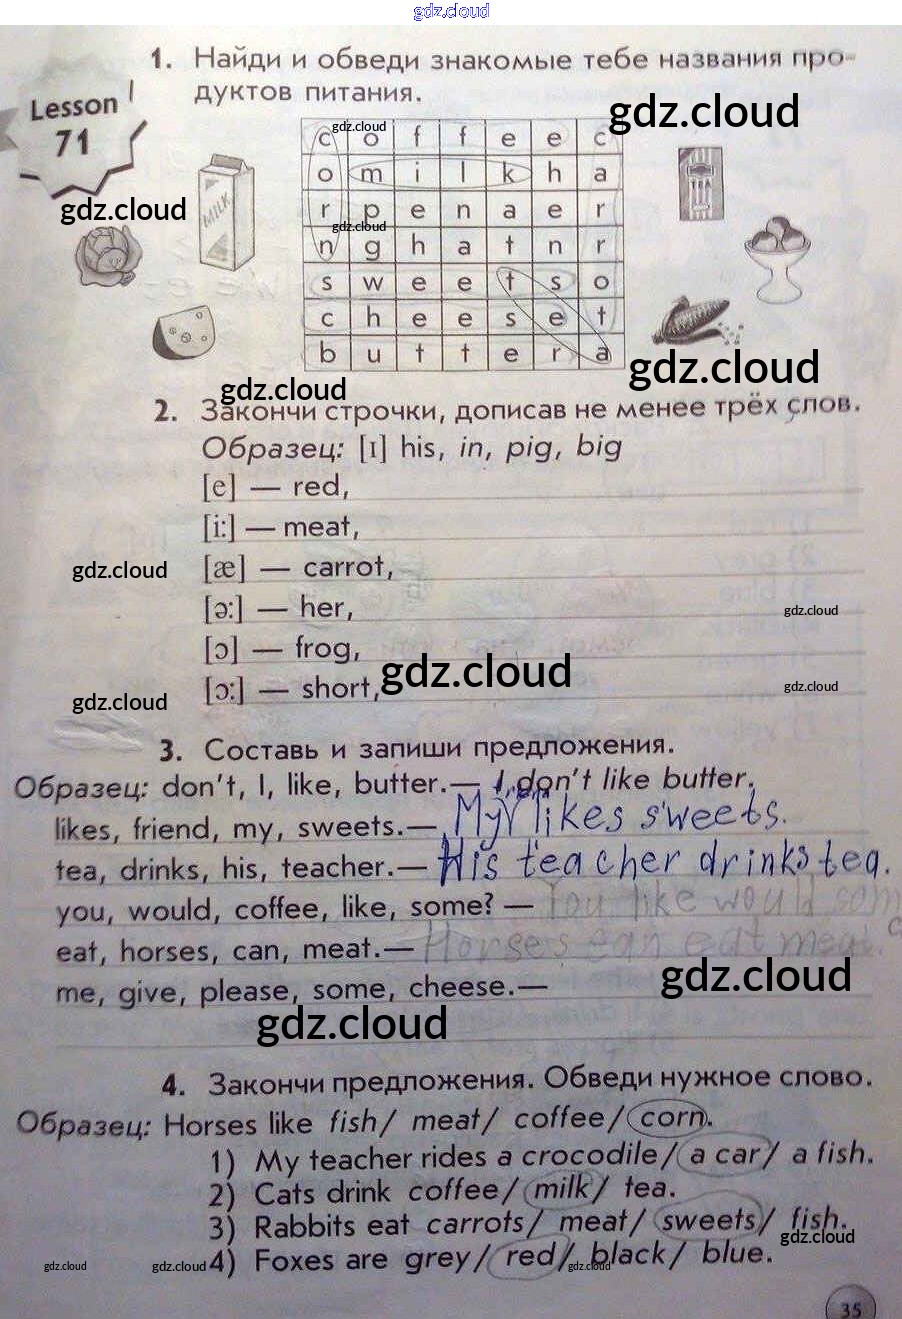 gdz.cloud
1. Найди и обведи знакомые тебе названия про-
дуктов питания.
Lesson
71
gdz.cloud
gdz.cloud
c o f f e e c
o m i l k h a
r p e n a e r
n g h a t n r
s w e e t s o
c h e e s e t
b u t t e r a
MILK
TEA
gdz.cloud
gdz.cloud
gdz.cloud
gdz.cloud
2. Закончи строчки, дописав не менее трёх слов.
Образец: [ɪ] his, in, pig, big
[e] — red,
[i:] — meat,
gdz.cloud
[æ] — carrot,
[ə:] — her,
gdz.cloud
[ɔ] — frog,
gdz.cloud
gdz.cloud
gdz.cloud
[ɔ:] — short,
3. Составь и запиши предложения.
Образец: don't, I, like, butter.— I don't like butter.
likes, friend, my, sweets.— My likes sweets.
tea, drinks, his, teacher.— His teacher drinks tea.
you, would, coffee, like, some? — You like would som
eat, horses, can, meat.— Horses can eat meat.
gdz.cloud
me, give, please, some, cheese.—
gdz.cloud
4. Закончи предложения. Обведи нужное слово.
Образец: Horses like fish/ meat/ coffee/ corn.
1) My teacher rides a crocodile/ a car/ a fish.
2) Cats drink coffee/ milk/ tea.
3) Rabbits eat carrots/ meat/ sweets/ fish.
gdz.cloud
4) Foxes are grey/ red/ black/ blue.
gdz.cloud
gdz.cloud
gdz.cloud
35